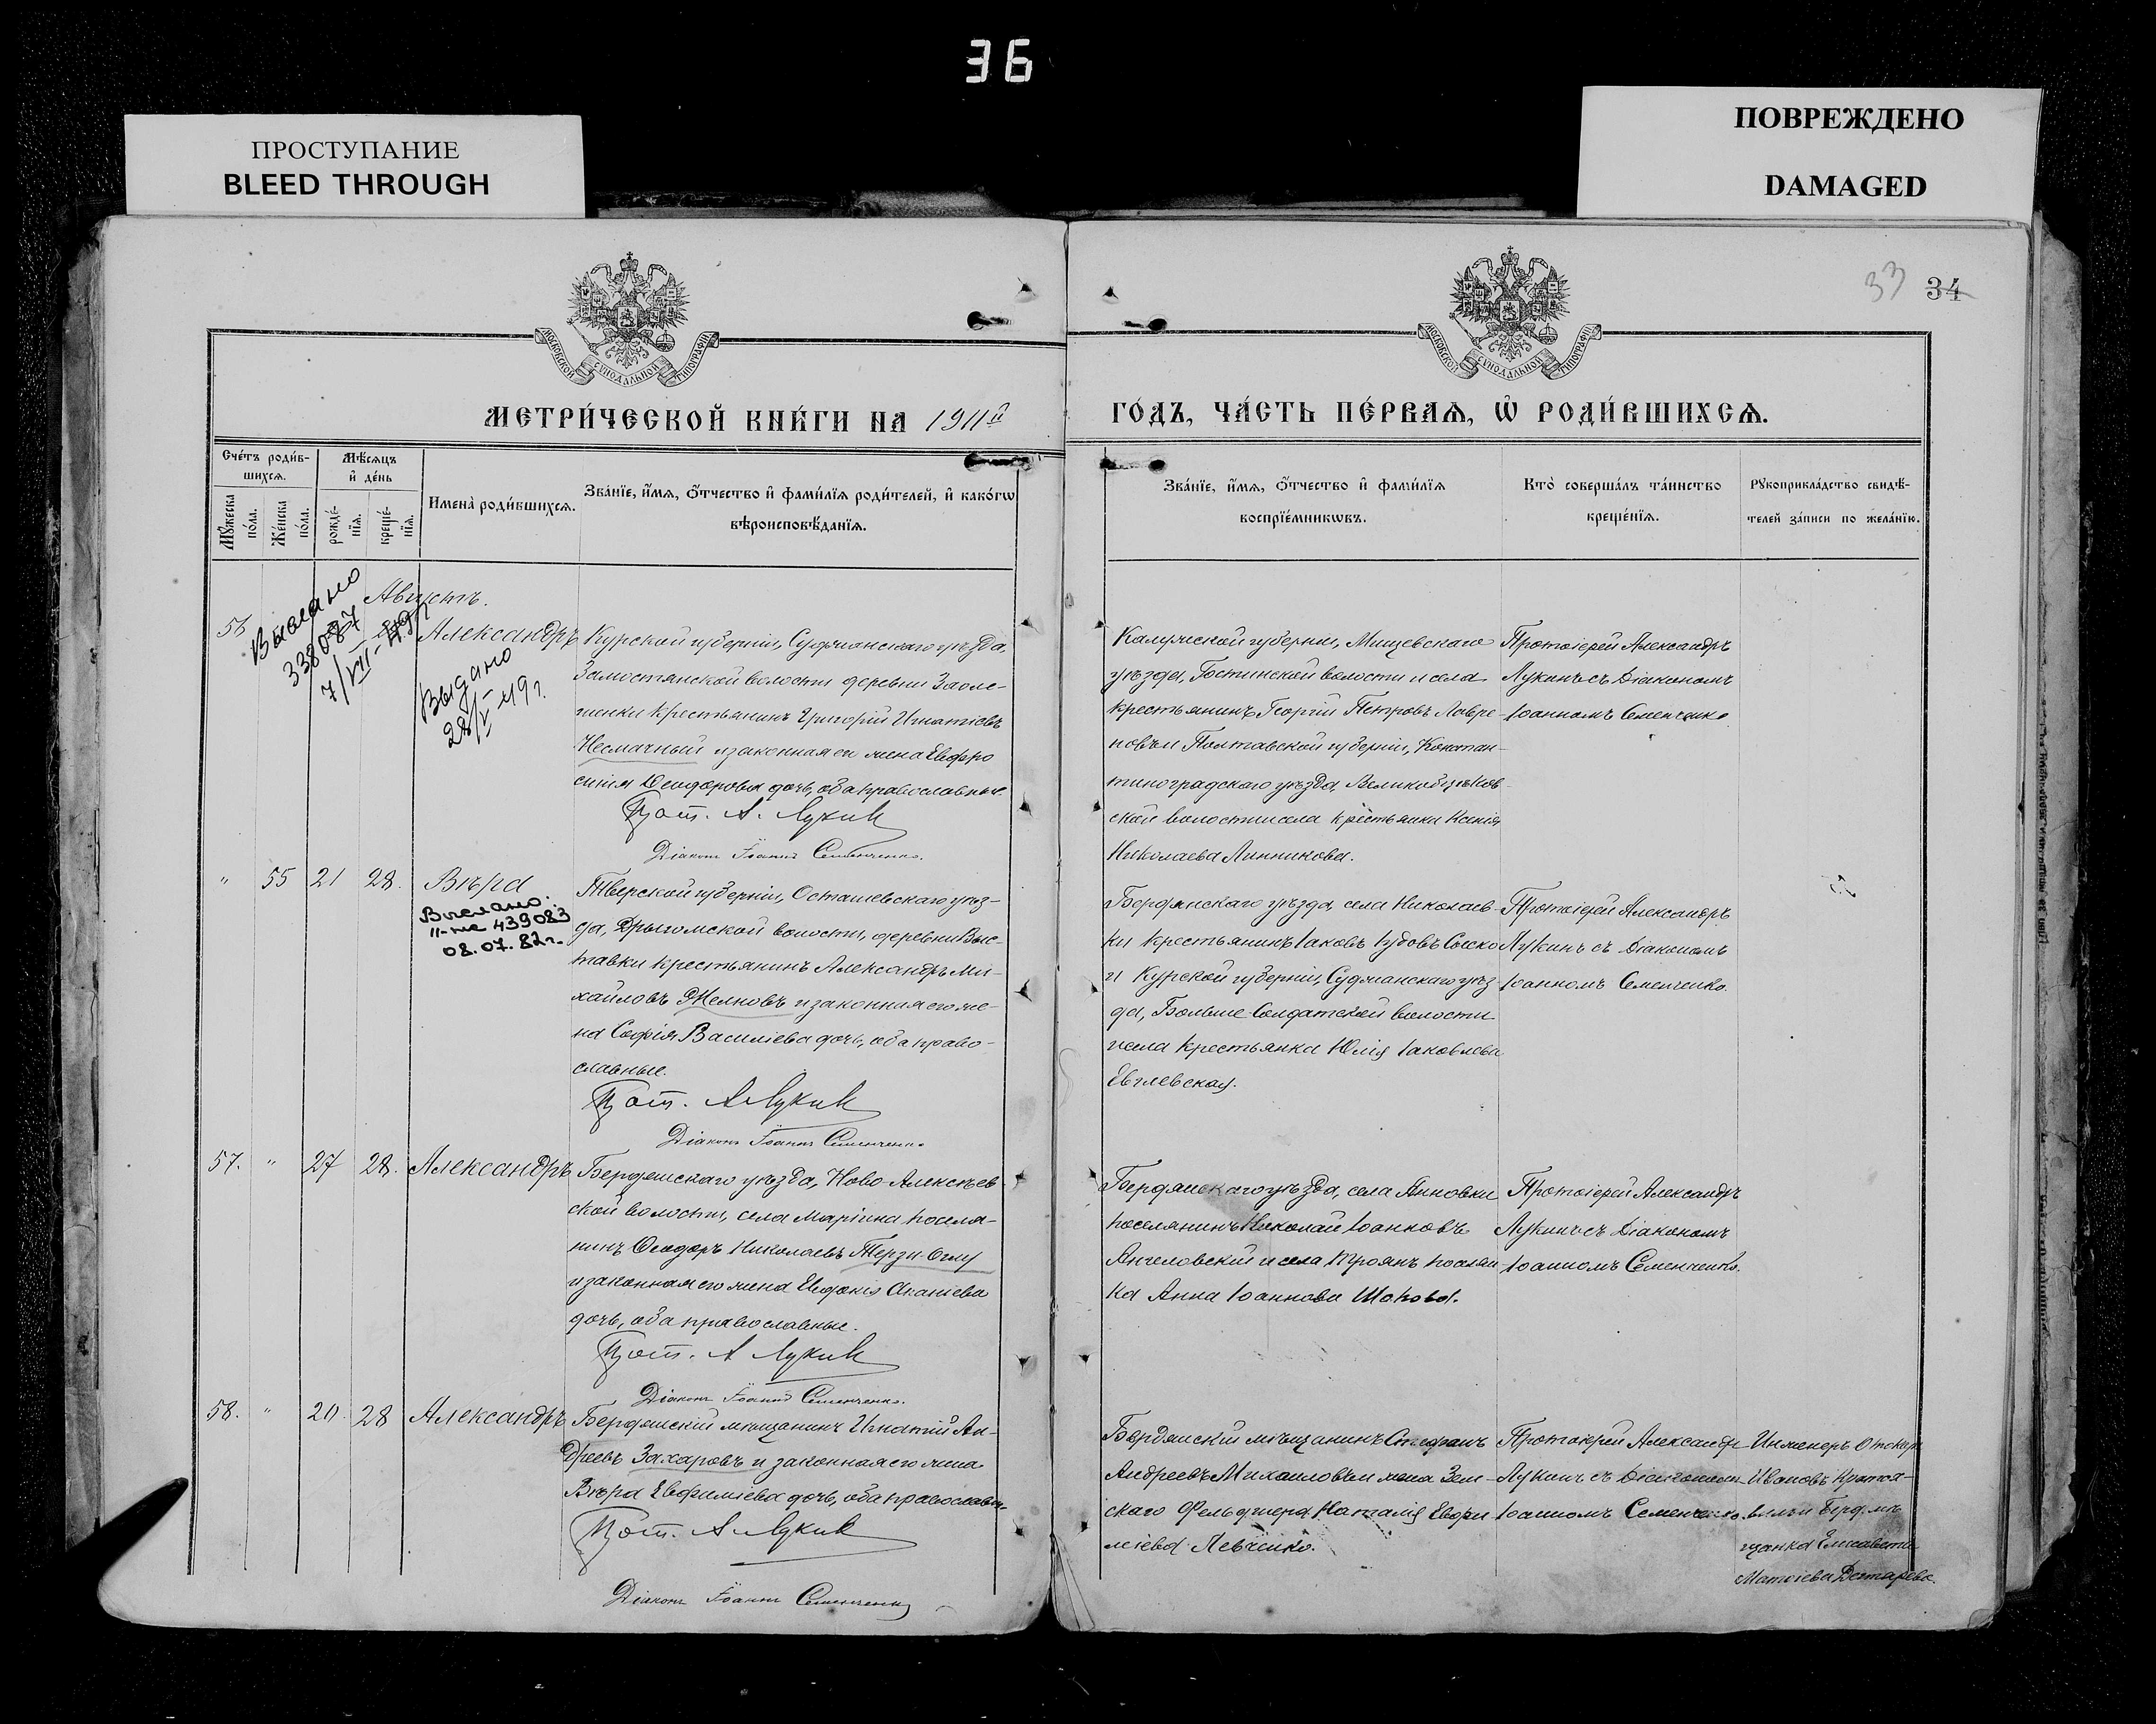 36
ПРОСТУПАНИЕ
BLEED THROUGH
ПОВРЕЖДЕНО
DAMAGED
33 34
МОСКОВСКОЙ СѴНОДАЛЬНОЙ ТИПОГРАФІИ
МОСКОВСКОЙ СѴНОДАЛЬНОЙ ТИПОГРАФІИ
МЕТРИ́ЧЕСКОЙ КНИ́ГИ НА 1911й
ГО́ДЪ, ЧА́СТЬ ПЕ́РВАѦ, Ѡ҆ РОДИ́ВШИХСѦ.
Сче́тъ роди́в-
шихсѧ.
Мꙋ́жеска по́ла.
Же́нска по́ла.
Мѣ́сѧцъ
и҆ де́нь
рожде́-
нїѧ.
креще́-
нїѧ.
Имена̀ роди́вшихсѧ.
Зва́нїе, и҆́мѧ, ѻ҆́тчество и҆ фами́лїѧ роди́телей, и҆ како́гѡ
вѣроисповѣ́данїѧ.
Зва́нїе, и҆́мѧ, ѻ҆́тчество и҆ фами́лїѧ
воспрїе́мникѡвъ.
Кто̀ соверша́лъ та́инство
креще́нїѧ.
Рꙋкоприкла́дство свидѣ́-
телей за́писи по жела́нїю.
Августъ.
56
Выслано
338087
7/VII-49г
Александръ
Выдано
28/V-49г.
Курской губерніи, Суджанскаго уѣзда,
Замостянской волости деревни Заоле-
шенки крестьянинъ Григорій Игнатіевъ
и законная его жена Евфро
синія Ѳеодорова дочь, оба православные.
Прот. А. Лукин
Діаконъ Іоаннъ Семенченко.
Калужской губерніи, Мещевскаго
уѣзда, Гостинской волости и села
крестьянинъ Георгій Петровъ Лавре-
новъ и Полтавской губерніи, Констан-
тиноградскаго уѣзда,
ской волости и села крестьянка Ксенія
Николаева Линникова.
Протоіерей Александръ
Лукинъ съ Діакономъ
Іоанномъ Семенченко
" 55 21 28. Вѣра
Выслано.
II-ое 439083
08.07.82г.
Тверской губерніи, Осташевскаго уѣз-
да, волости, деревни Выс-
тавки крестьянинъ Александръ Ми-
хайловъ и законная его же-
на Софія Василіева дочь, оба право-
славные.
Прот. А Лукин
Діаконъ Іоаннъ Семенченко
Бердянскаго уѣзда, села Николаев-
ки крестьянинъ Іаковъ
и Курской губерніи, Суджанскаго уѣз-
да, Больше-Солдатской волости
и села крестьянка Юлія Іаковлева
Евглевская.
Протоіерей Александръ
Лукинъ съ Діакономъ
Іоанномъ Семенченко.
57. " 27 28. Александръ
Бердянскаго уѣзда, Ново-Алексѣев-
ской волости, села Маріина поселя-
нинъ Ѳеодоръ Николаевъ Терзи-Оглу
и законная его жена Евдокія Ананіева
дочь, оба православные.
Прот. А Лукин
Діаконъ Іоаннъ Семенченко.
Бердянскаго уѣзда, села Анновки
поселянинъ Николай Іоанновъ
Ангеловскій и села Троянъ поселян
ка Анна Іоаннова Шопова.
Протоіерей Александръ
Лукинъ съ Діакономъ
Іоанномъ Семенченко.
58. " 20 28 Александръ
Бердянскій мѣщанинъ Игнатій Ан-
дреевъ Захаровъ и законная его жена
Вѣра Евфиміева дочь, оба православн.
Прот. А. Лукин
Діаконъ Іоаннъ Семенченко
Бердянскій мѣщанинъ Стефанъ
Андреевъ Михаиловъ и жена Зем-
скаго Фельдшера Наталія Евфи-
міева Левченко.
Протоіерей Александр
Лукинъ съ Діакономъ
Іоанномъ Семенченко.
Инженеръ
Ивановъ
и Берд. мѣ
щанка Елисавета
Матѳіева Дегтярева.